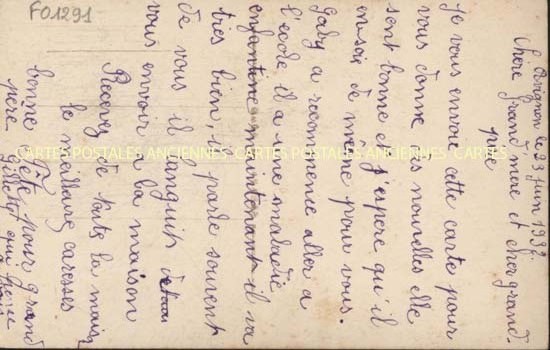 FO1291
Avignon le 23 juin 1932
Chère grand'mère et cher grand-
père
Je vous envoie cette carte pour
vous donne des nouvelles elle
sont bonne et j'espère qu'il
en soie de même pour vous.
Gaby a recommence aller a
l'école il a une maladie
enfantine maintenant il va
très bien, il parle souvent
de vous il languit
vous envoir a la maison
Recevez de toute la maison
le meilleure caresses
bonne fête pour grand
père
CARTES POSTALES ANCIENNES CARTES POSTALES ANCIENNES CARTES POSTALES ANCIENNES